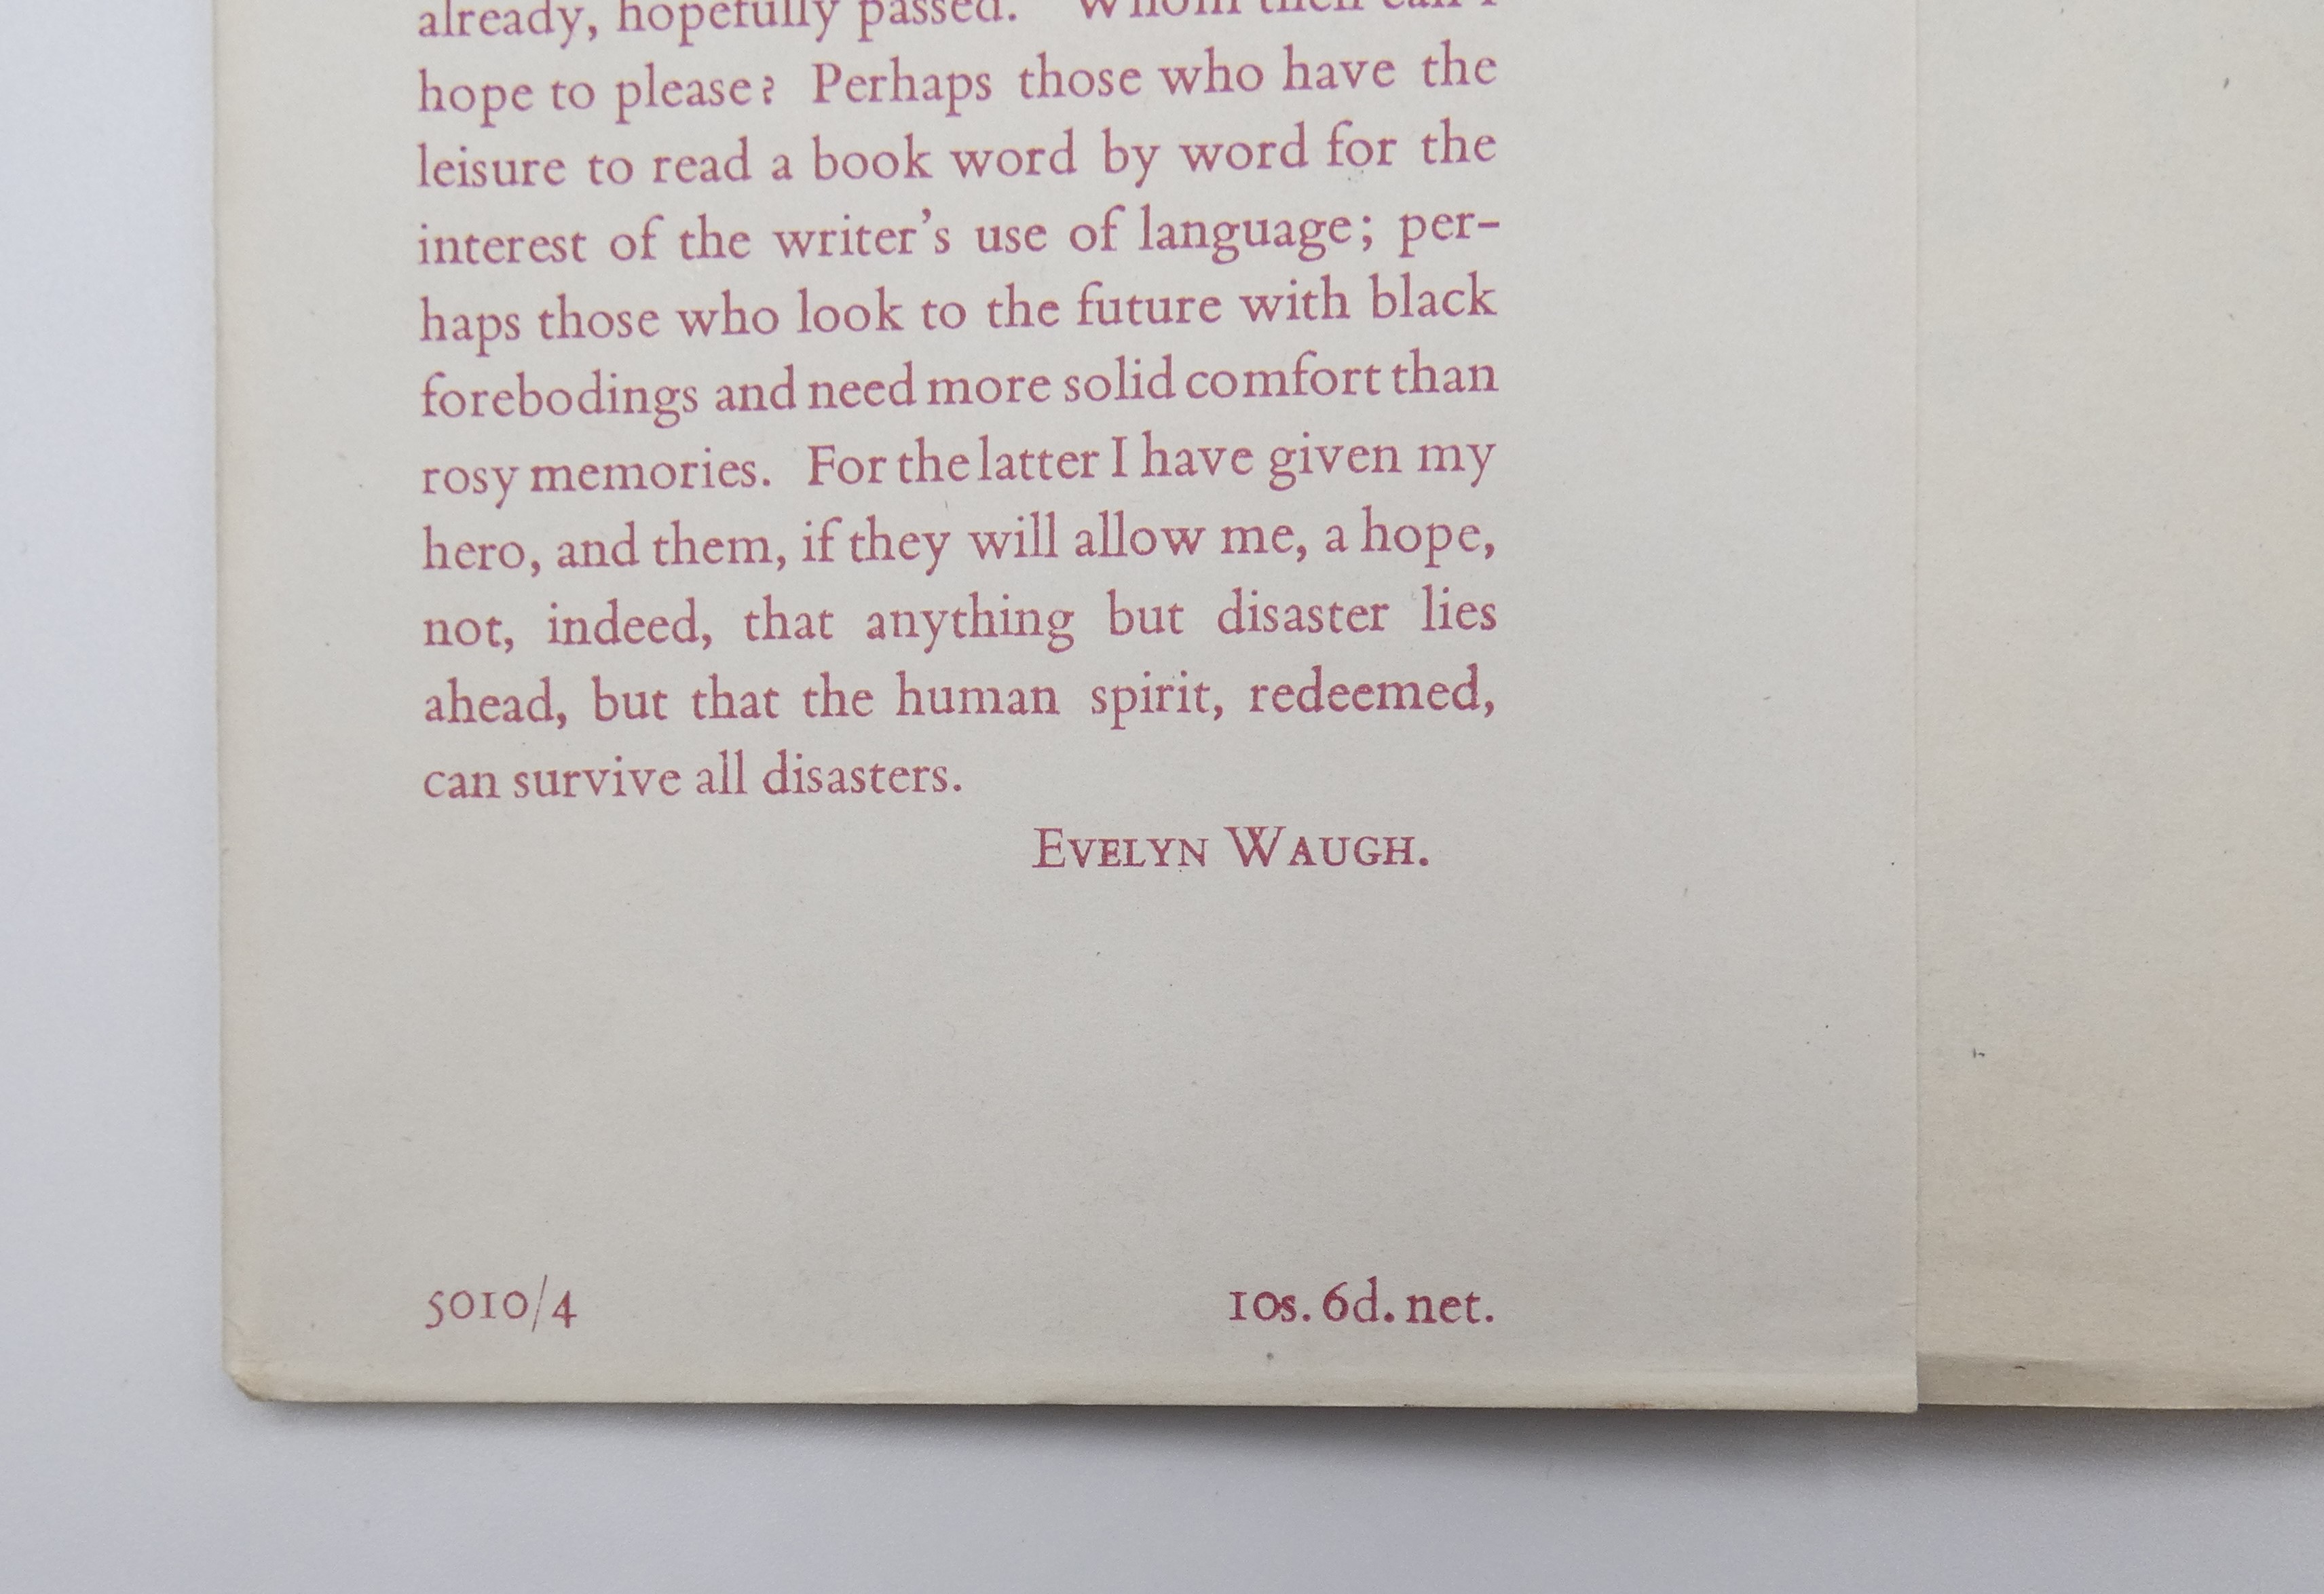 already, hopefully passed. Whom then can I
hope to please? Perhaps those who have the
leisure to read a book word by word for the
interest of the writer's use of language; per-
haps those who look to the future with black
forebodings and need more solid comfort than
rosy memories. For the latter I have given my
hero, and them, if they will allow me, a hope,
not, indeed, that anything but disaster lies
ahead, but that the human spirit, redeemed,
can survive all disasters.
EVELYN WAUGH.
5010/4 10s. 6d. net.